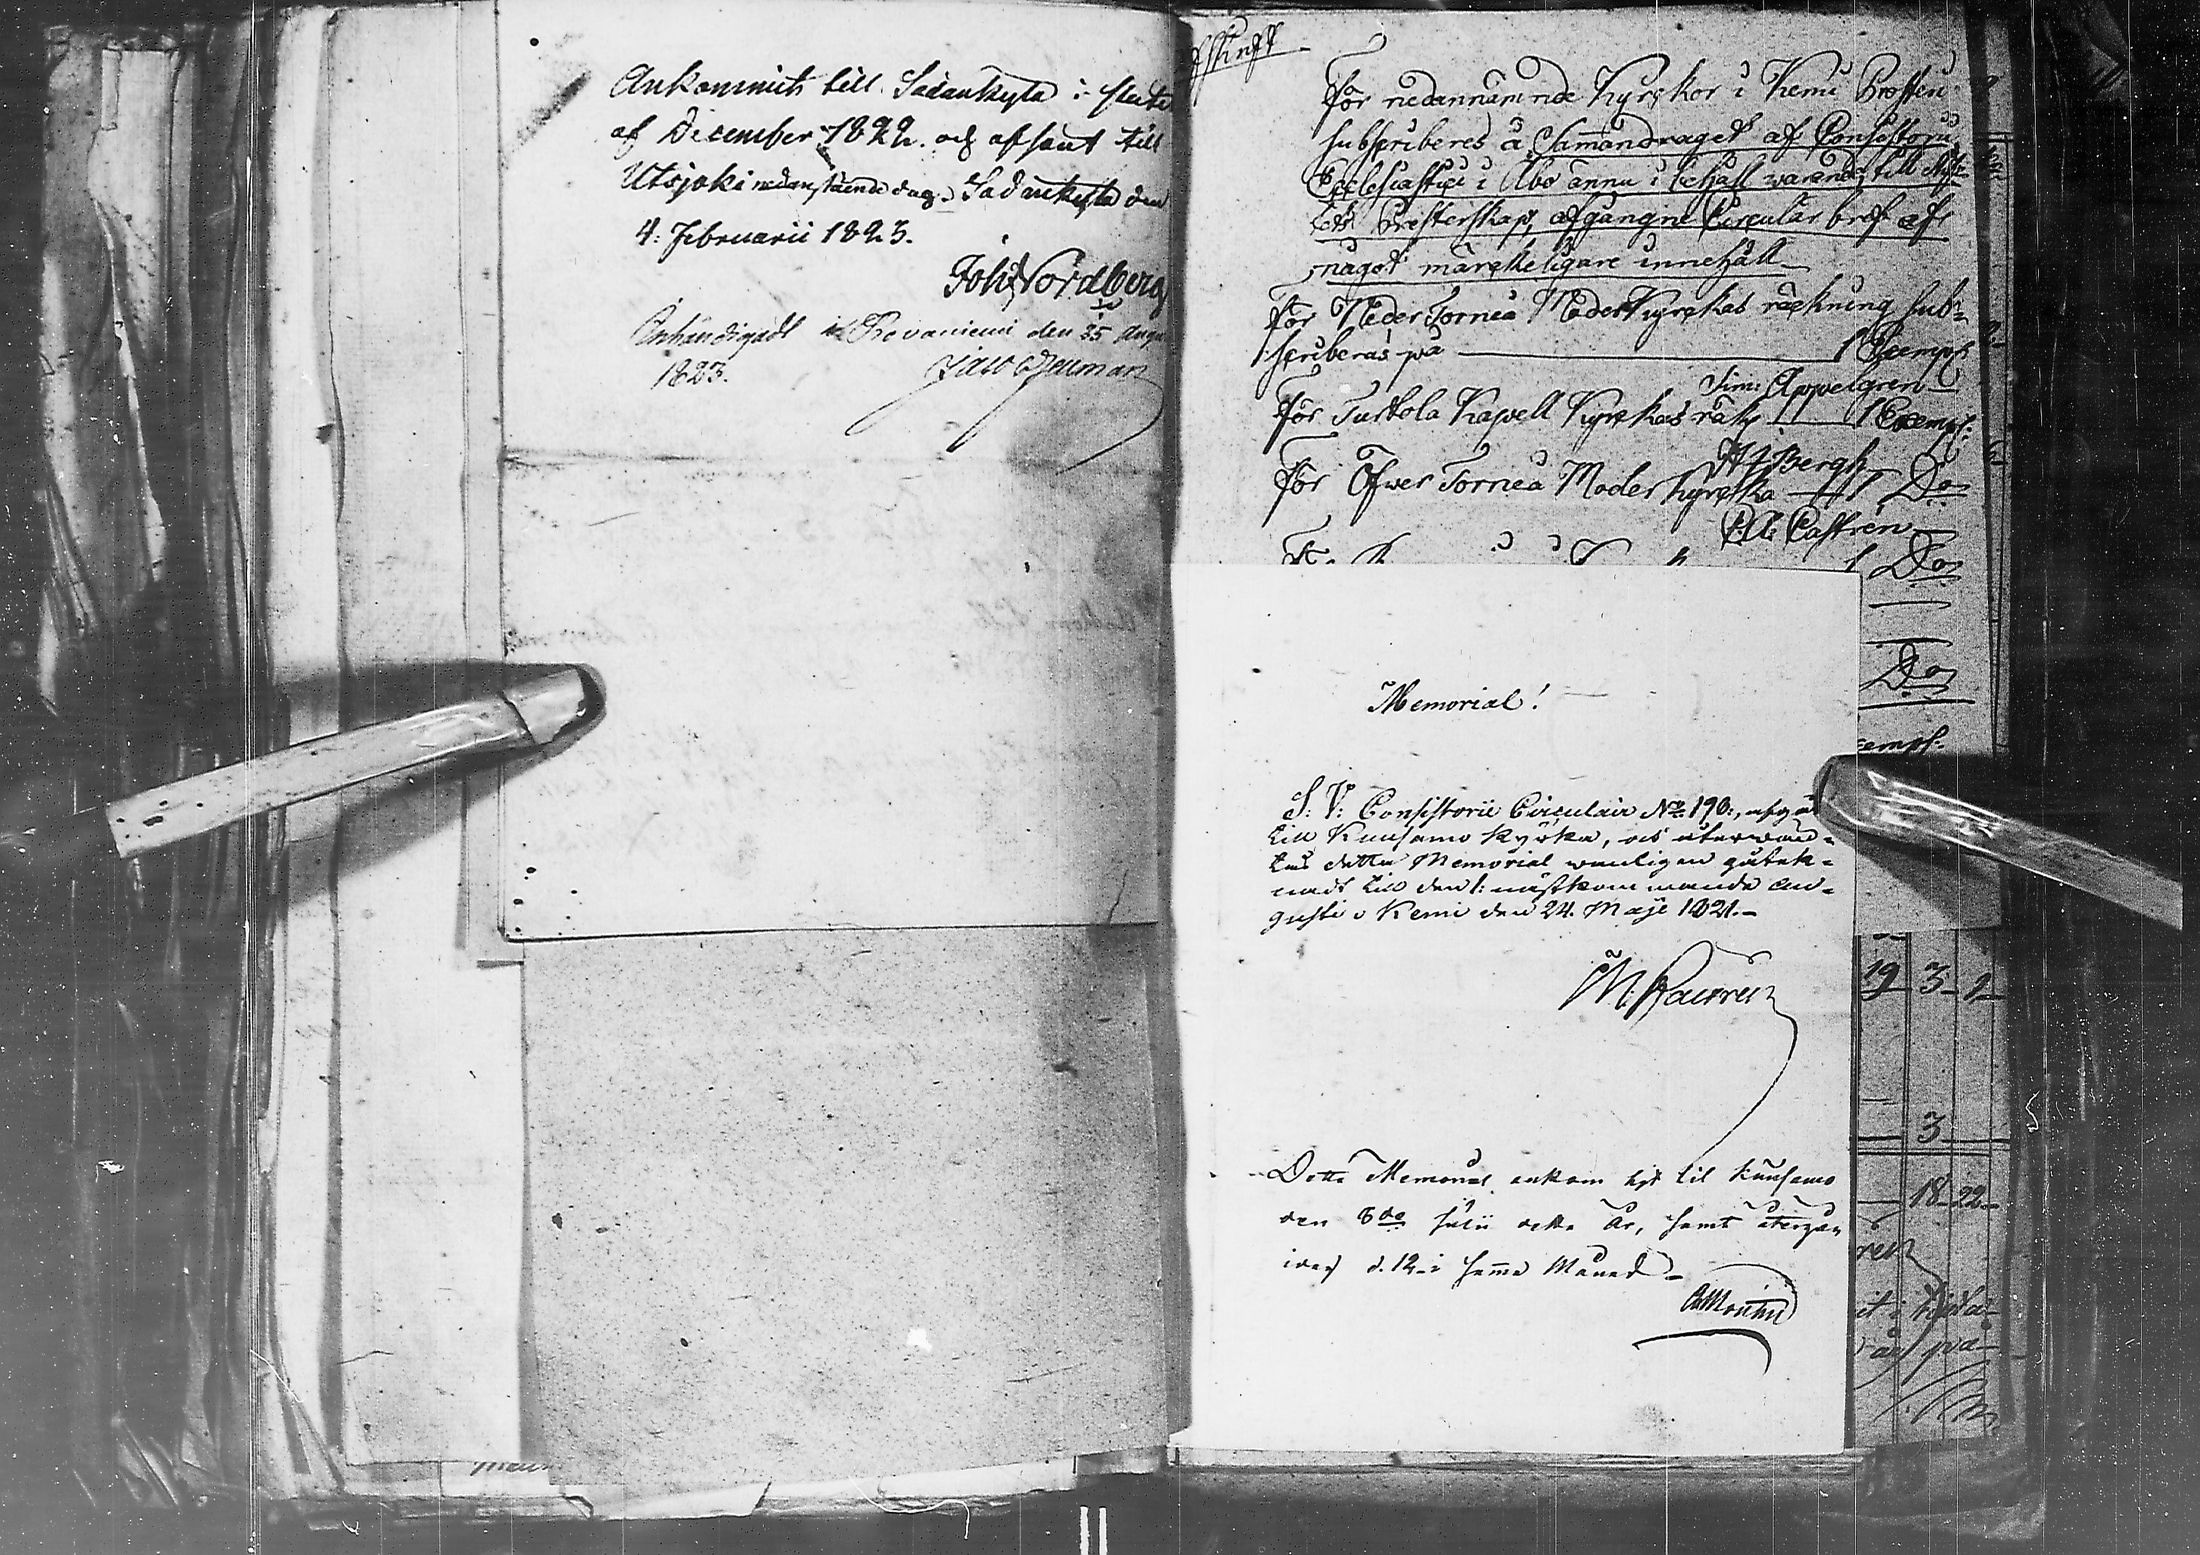 Ankommit till Sådankyla i slutet
af December 1822. och afsänt till
Utsjoki nedanstående dag. Sodankyla den
4. Februarii 1823.
Joh: Nordberg
Anhändigadt i Rovaniemi den 25 Augu
1823.
Jacob Heuman
Afskrift
För nedannämnde Kyrckor i Kemi Prosteri
subscriberes å Samandraget af Consistorii
Ecclesiastici i Åbo ännu i behåll warande, till Stif-
tets Presterskap, afgångne Circulär bref af
något märckeligare innehåll
För Neder Torneå Moder Kyrckas räckning sub-
scriberas på 1 Exempl.
Sim: Appelgren
För Turtola Kapell Kyrckas räkg 1 Exempl:
H J Bergh
För Öfwer Torneå Moder kyrcka 1 Do
P. A. Castrén
1 Do
Do
Exempl.
Memorial!
S: V: Consistorii Circulair No 190:, afgår
till Kuusamo Kyrka, och återwän-
tas detta Memorial wanligen qvitek-
nadt till den 1: nästkommande Au-
gusti. Kemi den 24. Maji 1821.
M:
19 3 2
3
18 22
Detta Memorial ankom hit til Kuusamo
den 8de Julii detta År, samt återgår
idag d. 12 i samma Månad
ren
på